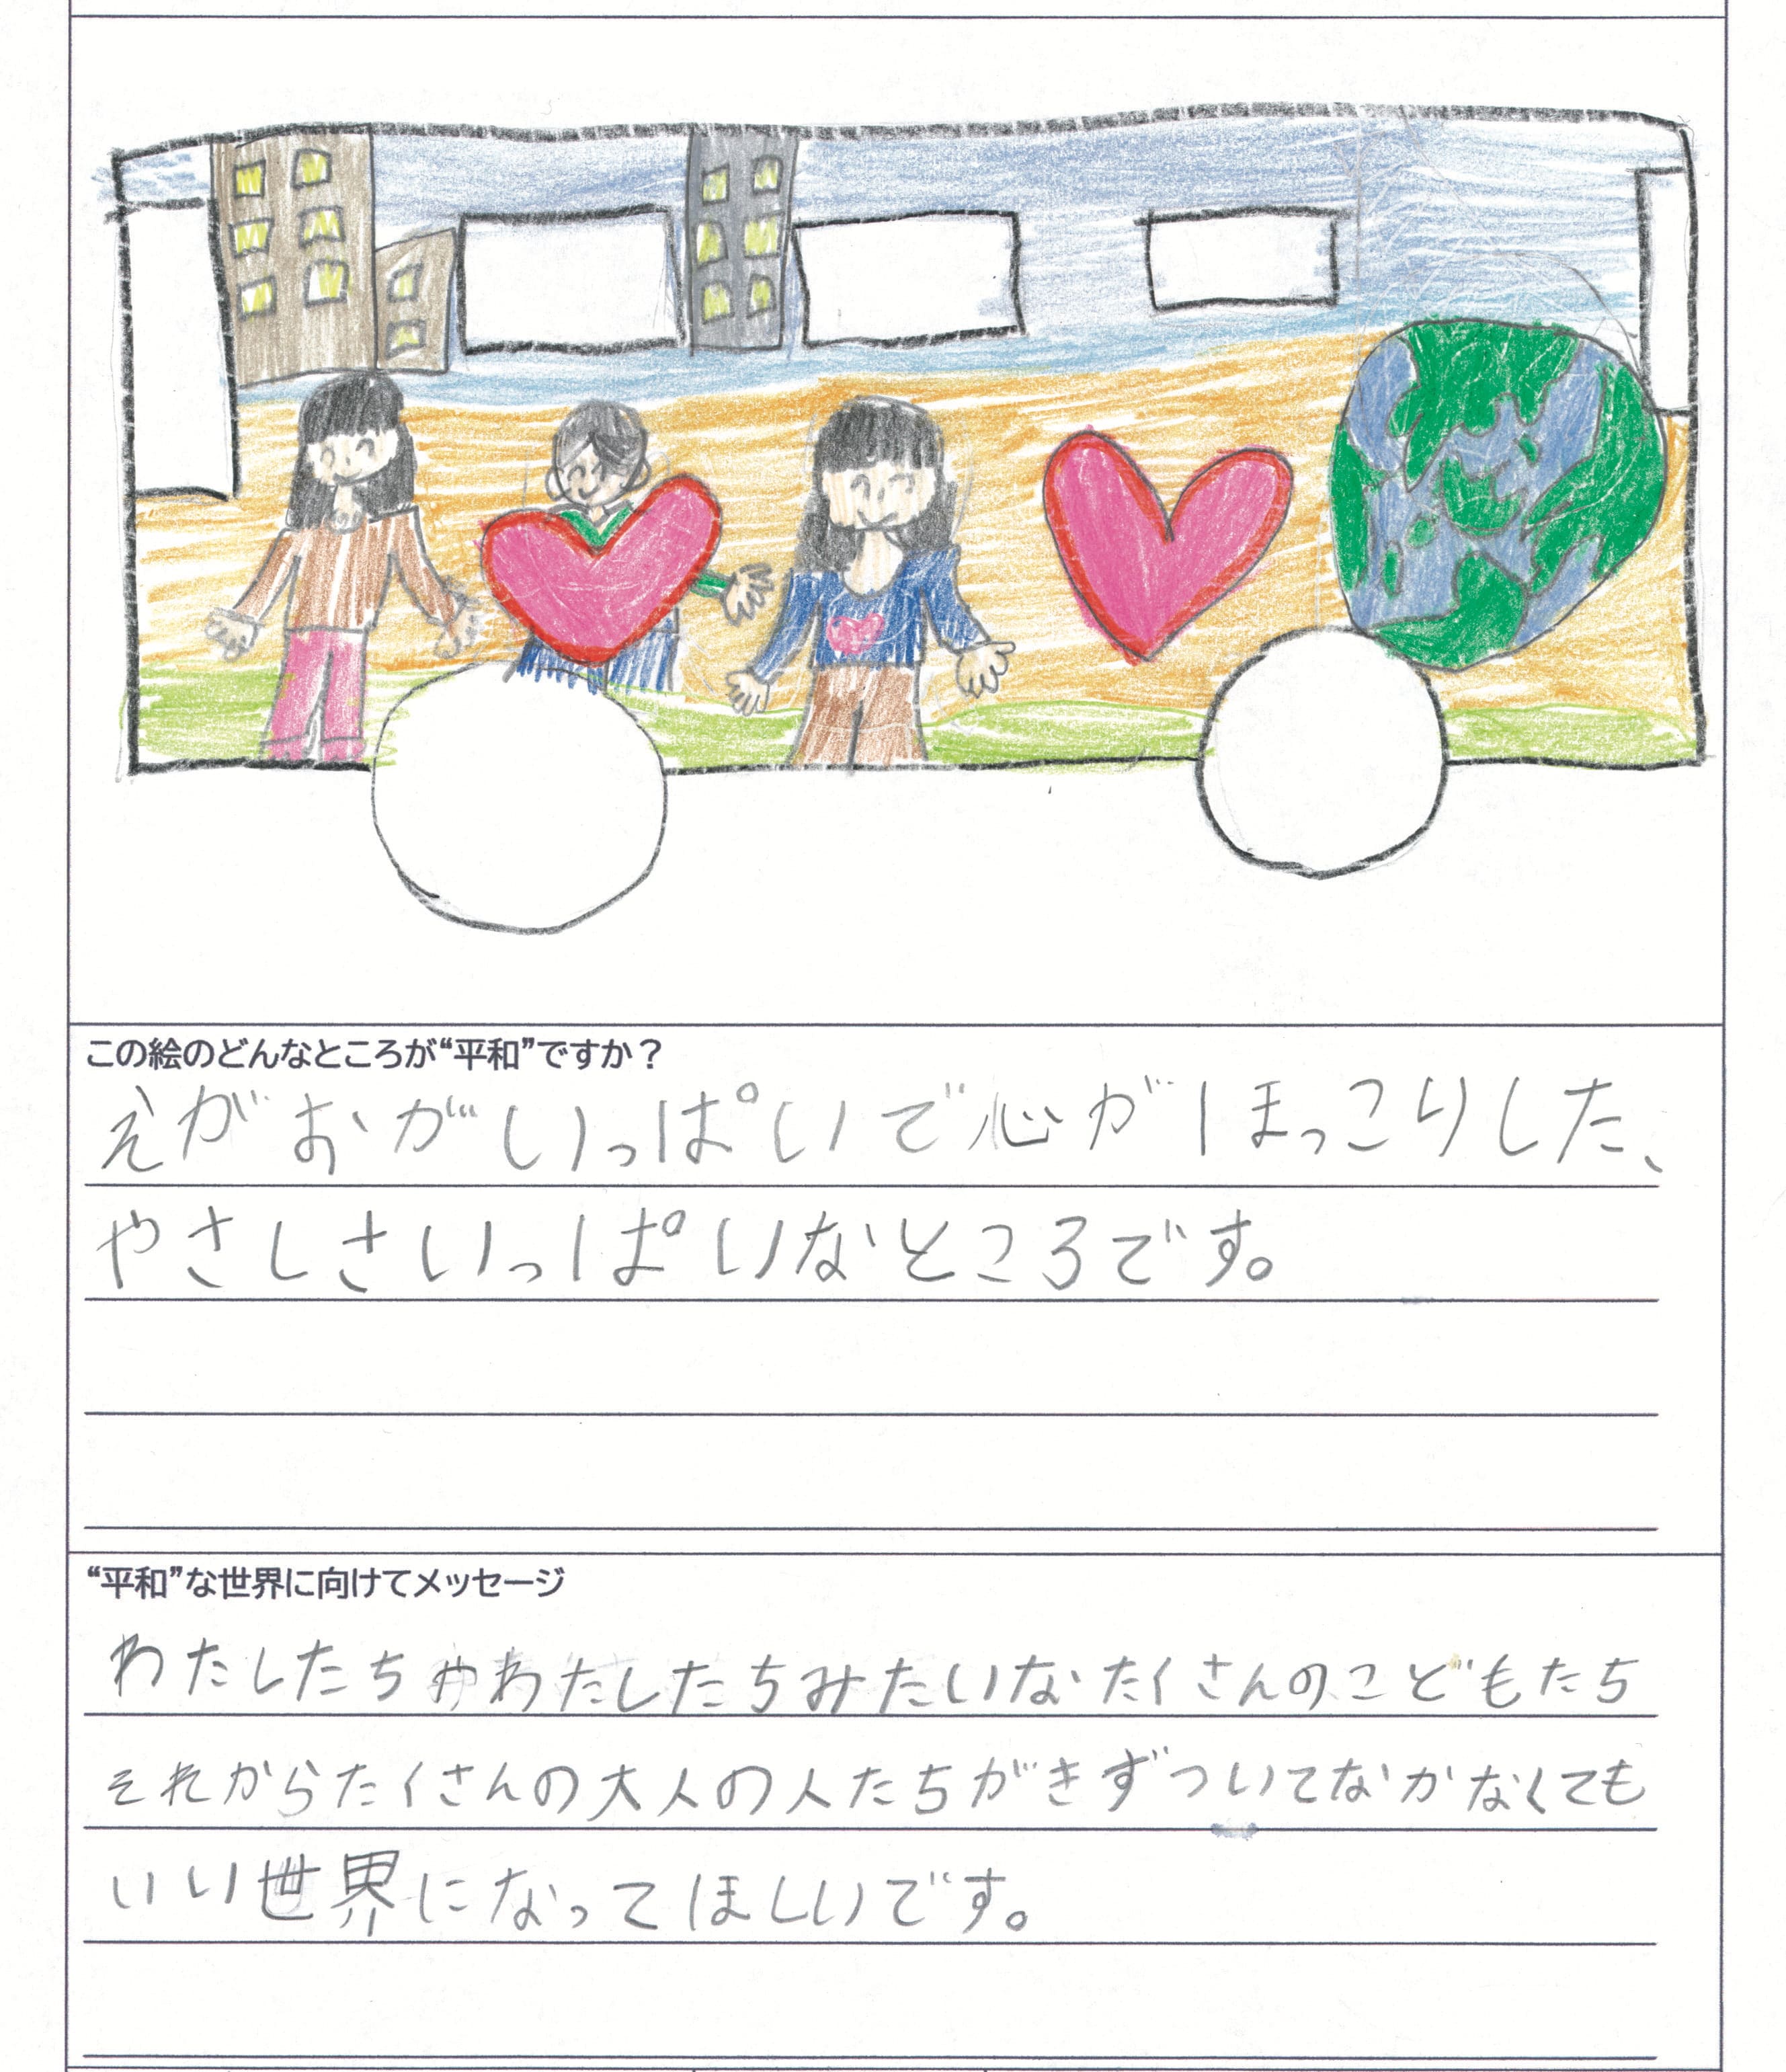 この絵のどんなところが“平和”ですか？
えがおがいっぱいで心がほっこりした、
やさしさいっぱいなところです。
“平和”な世界に向けてメッセージ
わたしたちやわたしたちみたいなたくさんのこどもたち
それからたくさんの大人の人たちがきずついてなかなくても
いい世界になってほしいです。